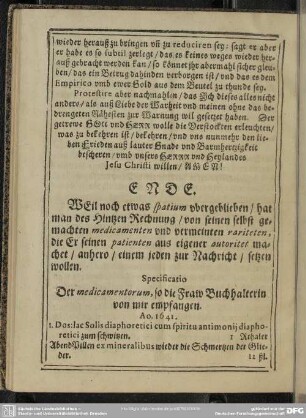 wieder herauß zu bringen vñ zu reduciren sey: sagt er aber
er habe es so subtil zerlegt / das es keines weges wieder her-
auß gebracht werden kan / so könnet ihr abermahl sicher gleu-
ben / das ein Betrug dahinden verborgen ist / und das es dem
Empirico vmb ewer Gold aus dem Beutel zu thunde sey.
Protestire aber nachmahln / das Ich dieses alles nicht
anders / als auß Liebe der Warheit und meinen ohne das be-
drengeten Nähesten zur Warnung wil gesetzet haben. Der
getrewe GOtt und HERR wolle die Verstockten erleuchten /
was zu bekehren ist / bekehren / und vns nunmehr den lie-
ben Frieden auß lauter Gnade und Barmhertzigkeit
bescheren / vmb vnsers HERRN und Heylandes
Jesu Christi willen / AMEN!
ENDE.
WEil noch etwas spatium vbergeblieben / hat
man des Hintzen Rechnung / von seinen selbst ge-
machten medicamenten und vermeinten rariteten,
die Er seinen patienten aus eigener autoritet ma-
chet / anhero / einem jeden zur Nachricht / setzen
wollen.
Specificatio
Der medicamentorum, so die Fraw Buchhalterin
von mir empfangen.
Ao. 1641.
1. Dos: lac Solis diaphoretici cum spiritu antimonij diapho-
retici zum schwitzen. 1 Rthaler
Abend Pillen ex mineralibus wieder die Schmertzen der Glie-
der. 12 gl.